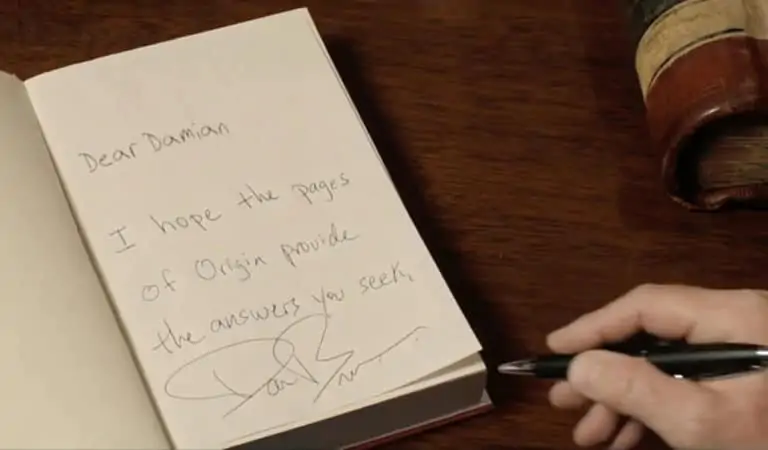 Dear Damian
I hope the pages
of Origin provide
the answers you seek,
Dan Brown